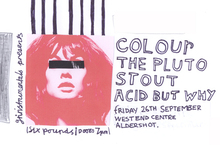 COLOUR
THE PLUTO
STOUT
ACID BUT WHY
FRIDAY 26TH SEPTEMBER
WEST END CENTRE
ALDERSHOT.
presents
SIX pounds | DOORS 7pm